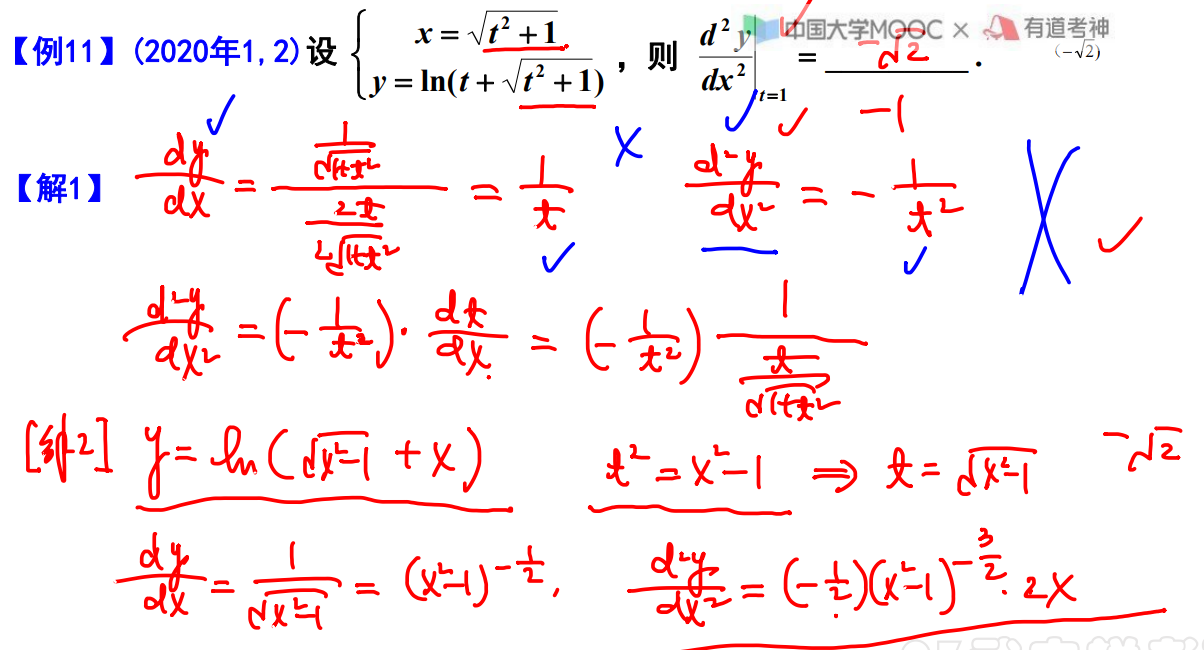 【例11】(2020年1,2)设 { x = √(t² + 1) , y = ln(t + √(t² + 1)) , 则 d²y/dx² |t=1 = -√2 . (-√2)
中国大学MOOC × 有道考神
-1
【解1】 dy/dx = (1/√(1+t²))/(2t/(2√(1+t²))) = 1/t ✓ × d²y/dx² = -1/t² ✓ ✓ ×
d²y/dx² = (-1/t²)·dt/dx = (-1/t²) 1/(t/√(1+t²))
[解2] y = ln(√(x²-1) + x) t² = x²-1 ⇒ t = √(x²-1) -√2
dy/dx = 1/√(x²-1) = (x²-1)^(-1/2), d²y/dx² = (-1/2)(x²-1)^(-3/2)·2x